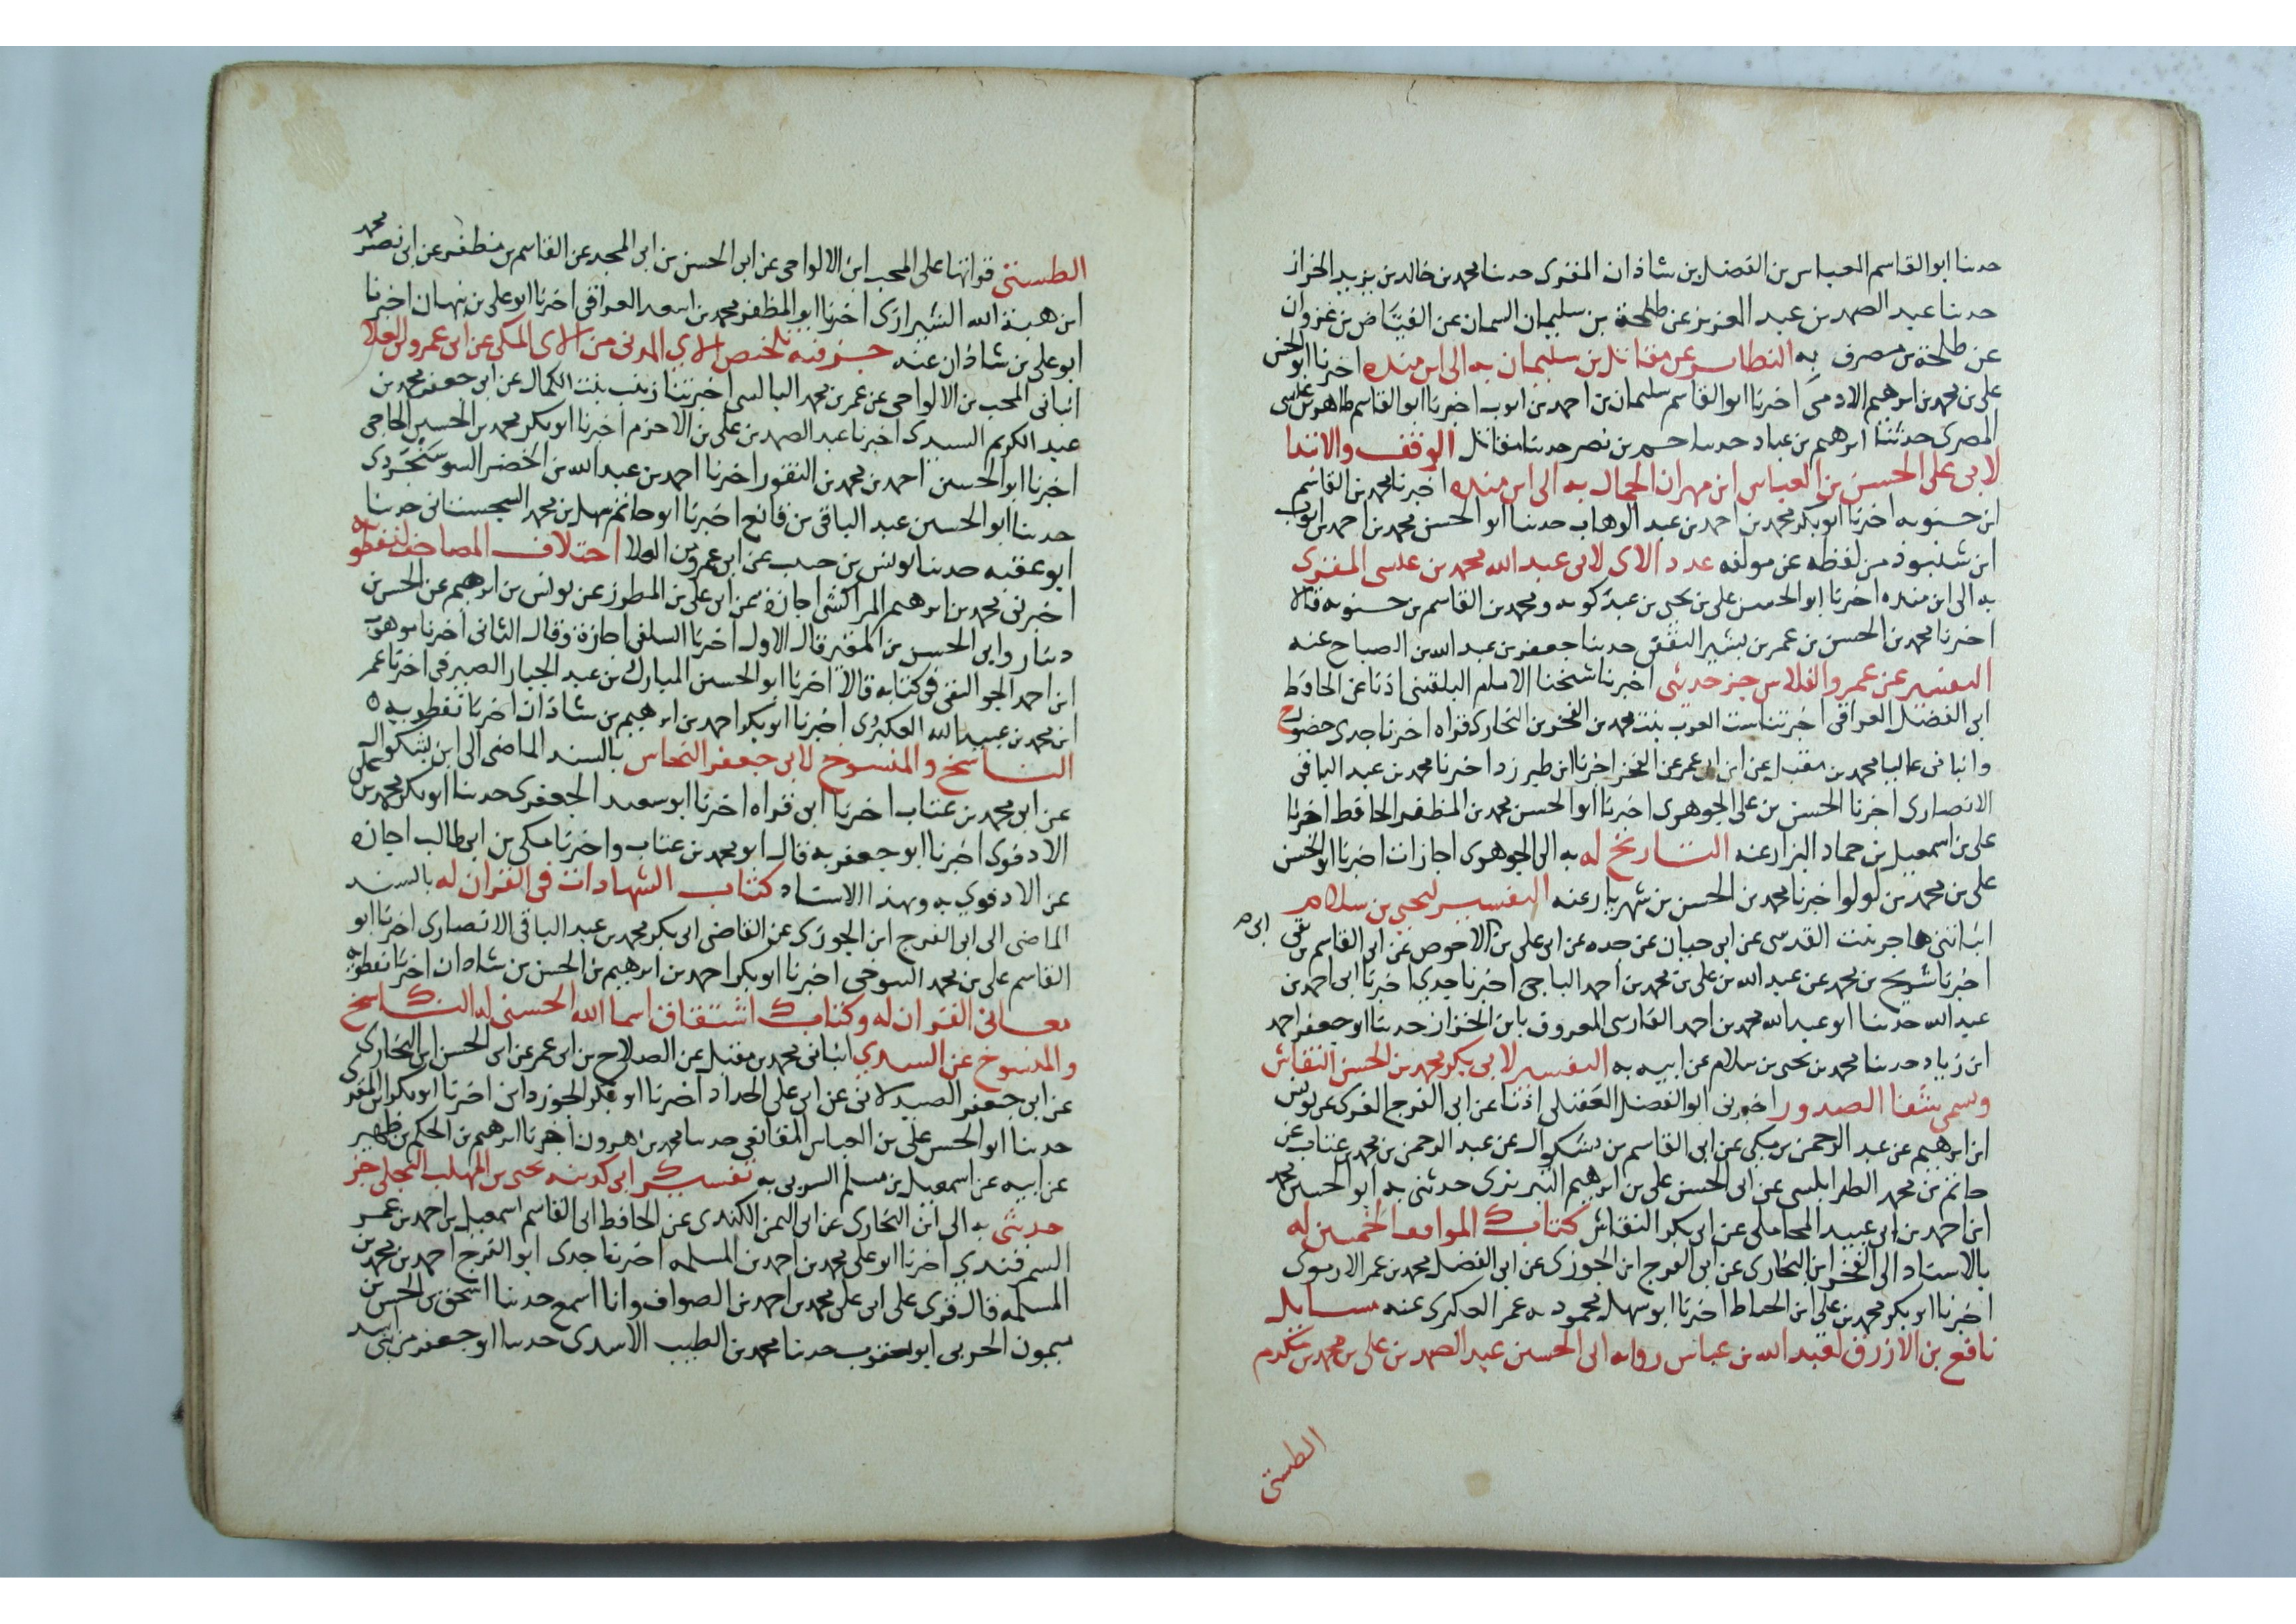 حدثنا ابو القاسم العباس بن الفضل بن شاذان المقرى حدثنا محمد بن خالد بن يزيد الخراز
حدثنا عبد الصمد بن عبد العزيز عن طلحة بن سليمان السمان عن الفياض بن غزوان
عن طلحة بن مصرف به النظاير عن مقاتل بن سليمان به الى ابن منده اخبرنا ابو الحسن
على بن محمد بن ابرهيم الادمى اخبرنا ابو القاسم سليمان بن احمد بن ايوب اخبرنا ابو القاسم طاهر بن عيسى
المصرى حدثنا ابرهيم بن عباد حدثنا بن نصر حدثنا مقاتل الوقف والابتدا
لابى على الحسن بن العباس ابن مهران الجمال به الى ابن منده اخبرنا محمد بن القاسم
ابن حسنويه اخبرنا ابو بكر محمد بن احمد بن عبد الوهاب حدثنا ابو الحسن محمد بن احمد بن ايوب
ابن شنبوذ من لفظه عن مولفه عدد الاى لابى عبد الله محمد بن عيسى المقرى
به الى ابن منده اخبرنا ابو الحسن على بن يحيى بن عبدكويه ومحمد بن القاسم بن حسنويه قالا
اخبرنا محمد بن الحسن بن عمر بن بشير الثقفى حدثنا جعفر بن عبد الله بن الصباح عنه
التفسير عن عمرو الفلاس جز حديثى اخبرنا شيخنا الامام البلقينى اذنا عن الحافظ
ابى الفضل العراقى اخبرتنا ست العرب بنت محمد بن الفخر بن البخارى قراه اخبرنا جدى حضورا ح
وانبانى عاليا محمد بن مقبل عن ابن ابى عمر عن الفخر اخبرنا ابن طبرزد اخبرنا محمد بن عبد الباقى
الانصارى اخبرنا الحسن بن على الجوهرى اخبرنا ابو الحسن محمد بن المظفر الحافظ اخبرنا
على بن اسمعيل بن حماد البزار عنه التاريخ له به الى الجوهرى اجازات اخبرنا ابو الحسن
على بن محمد بن لولو اخبرنا محمد بن الحسن بن شهريار عنه التفسير ليحيى بن سلام
انباتنى هاجر بنت القدسى عن ابى حيان عن جده عن ابى على بن الاحوص عن ابى القاسم بن بقى
اخبرنا شريح بن محمد عن عبد الله بن على بن محمد بن احمد الباجى اخبرنا جدى اخبرنا ابى احمد بن
عبد الله حدثنا ابو عبد الله محمد بن احمد الفارسى المعروف بابن الخراز حدثنا ابو جعفر احمد
ابن زياد حدثنا محمد بن يحيى بن سلام عن ابيه به التفسير لابى بكر محمد بن الحسن النقاش
ويسمى شفا الصدور اخبرنى ابو الفضل العقيلى اذنا عن ابى الفرج الغزى عن يونس
ابن ابرهيم عن عبد الرحمن بن مكى عن ابى القاسم بن بشكوال عن عبد الرحمن بن محمد بن عتاب عن
حاتم بن محمد الطرابلسى عن ابى الحسن على بن ابرهيم التبريزى حدثنى به ابو الحسين محمد
ابن احمد بن ابى عبيد المحاملى عن ابى بكر النقاش كتاب له
بالاسناد الى الفخر ابن البخارى عن ابى الفرج ابن الجوزى عن ابى الفضل محمد بن عمر الارموى
اخبرنا ابو بكر محمد بن على ابن الخياط اخبرنا ابو سهل محمود بن عمر العكبرى عنه مسايل
نافع بن الازرق لعبد الله بن عباس رواية ابى الحسين عبد الصمد بن على بن محمد بن مكرم
الطستى
الطستى قراتها على المحب ابن الالواحى عن ابى الحسن بن ابى المجد عن القاسم بن مظفر عن ابى نصر محمد
ابن هبة الله الشيرازى اخبرنا ابو المظفر محمد بن اسعد العراقى اخبرنا ابو على بن نبهان اخبرنا
ابو على بن شاذان عنه جز فيه تلخيص الاى المدنى من الاى المكى عن ابى عمرو بن العلا
انبانى المحب بن الالواحى عن عمر بن محمد البالسى اخبرتنا زينب بنت الكمال عن ابى جعفر محمد بن
عبد الكريم السيدى اخبرنا عبد الصمد بن على بن الاخرم اخبرنا ابو بكر محمد بن الحسين الحاجى
اخبرنا ابو الحسين احمد بن محمد بن النقور اخبرنا احمد بن عبد الله بن الخضر السوسنجردى
حدثنا ابو الحسين عبد الباقى بن قانع اخبرنا ابو حاتم سهل بن محمد السجستانى حدثنا
ابو عقبه حدثنا يونس بن حبيب عن ابى عمرو بن العلا اختلاف المصاحف لنفطويه
اخبرنى محمد بن ابرهيم المراكشى اجازه عن ابى على بن المطرز عن يونس بن ابرهيم عن الحسن بن
دينار وابى الحسن بن المقير قال الاول اخبرنا السلفى اجازة وقال الثانى اخبرنا موهوب
ابن احمد الجواليقى فى كتابه قالا اخبرنا ابو الحسين المبارك بن عبد الجبار الصيرفى اخبرنا عمر
ابن محمد بن عبيد الله العكبرى اخبرنا ابو بكر احمد بن ابرهيم بن شاذان اخبرنا نفطويه
الناسخ والمنسوخ لابى جعفر النحاس بالسند الماضى الى ابن بشكوال
عن ابى محمد بن عتاب اخبرنا ابى قراه اخبرنا ابو سعيد الجعفرى حدثنا ابو بكر محمد بن على
الادفوى اخبرنا ابو جعفر به قال ابو محمد بن عتاب واخبرنا مكى بن ابى طالب اجازه
عن الادفوى به وبهذا الاسناد كتاب الشهادات فى القران له بالسند
الماضى الى ابى الفرج ابن الجوزى عن القاضى ابى بكر محمد بن عبد الباقى الانصارى اخبرنا ابو
القاسم على بن محمد التنوخى اخبرنا ابو بكر احمد بن ابرهيم بن الحسن بن شاذان اخبرنا نفطويه
معانى القران له وكتاب اشتقاق اسما الله الحسنى له الناسخ
والمنسوخ عن السدى انبانى محمد بن مقبل عن الصلاح بن ابى عمر عن ابى الحسن ابن البخارى
عن ابى جعفر الصيدلانى عن ابى على الحداد اخبرنا ابو بكر الجوزدانى اخبرنا ابو بكر ابن المقرى
حدثنا ابو الحسن على بن العباس المقانعى حدثنا محمد بن هرون اخبرنا ابرهيم بن الحكم بن ظهير
عن ابيه عن اسمعيل بن مسلم السدى به تفسير ابى كدينه يحيى بن المهلب البجلى جز
حديثى به الى ابن البخارى عن ابى اليمن الكندى عن الحافظ ابى القاسم اسمعيل بن احمد بن عمر
السمرقندى اخبرنا ابو على محمد بن احمد بن المسلمه اخبرنا جدى ابو الفرج احمد بن محمد بن
المسلمه قال قرى على ابى على محمد بن احمد بن الصواف وانا اسمع حدثنا اسحق بن الحسن بن
ميمون الحربى ابو يعقوب حدثنا محمد بن الطبيب الاسدى حدثنا ابو جعفر من بنى اسد